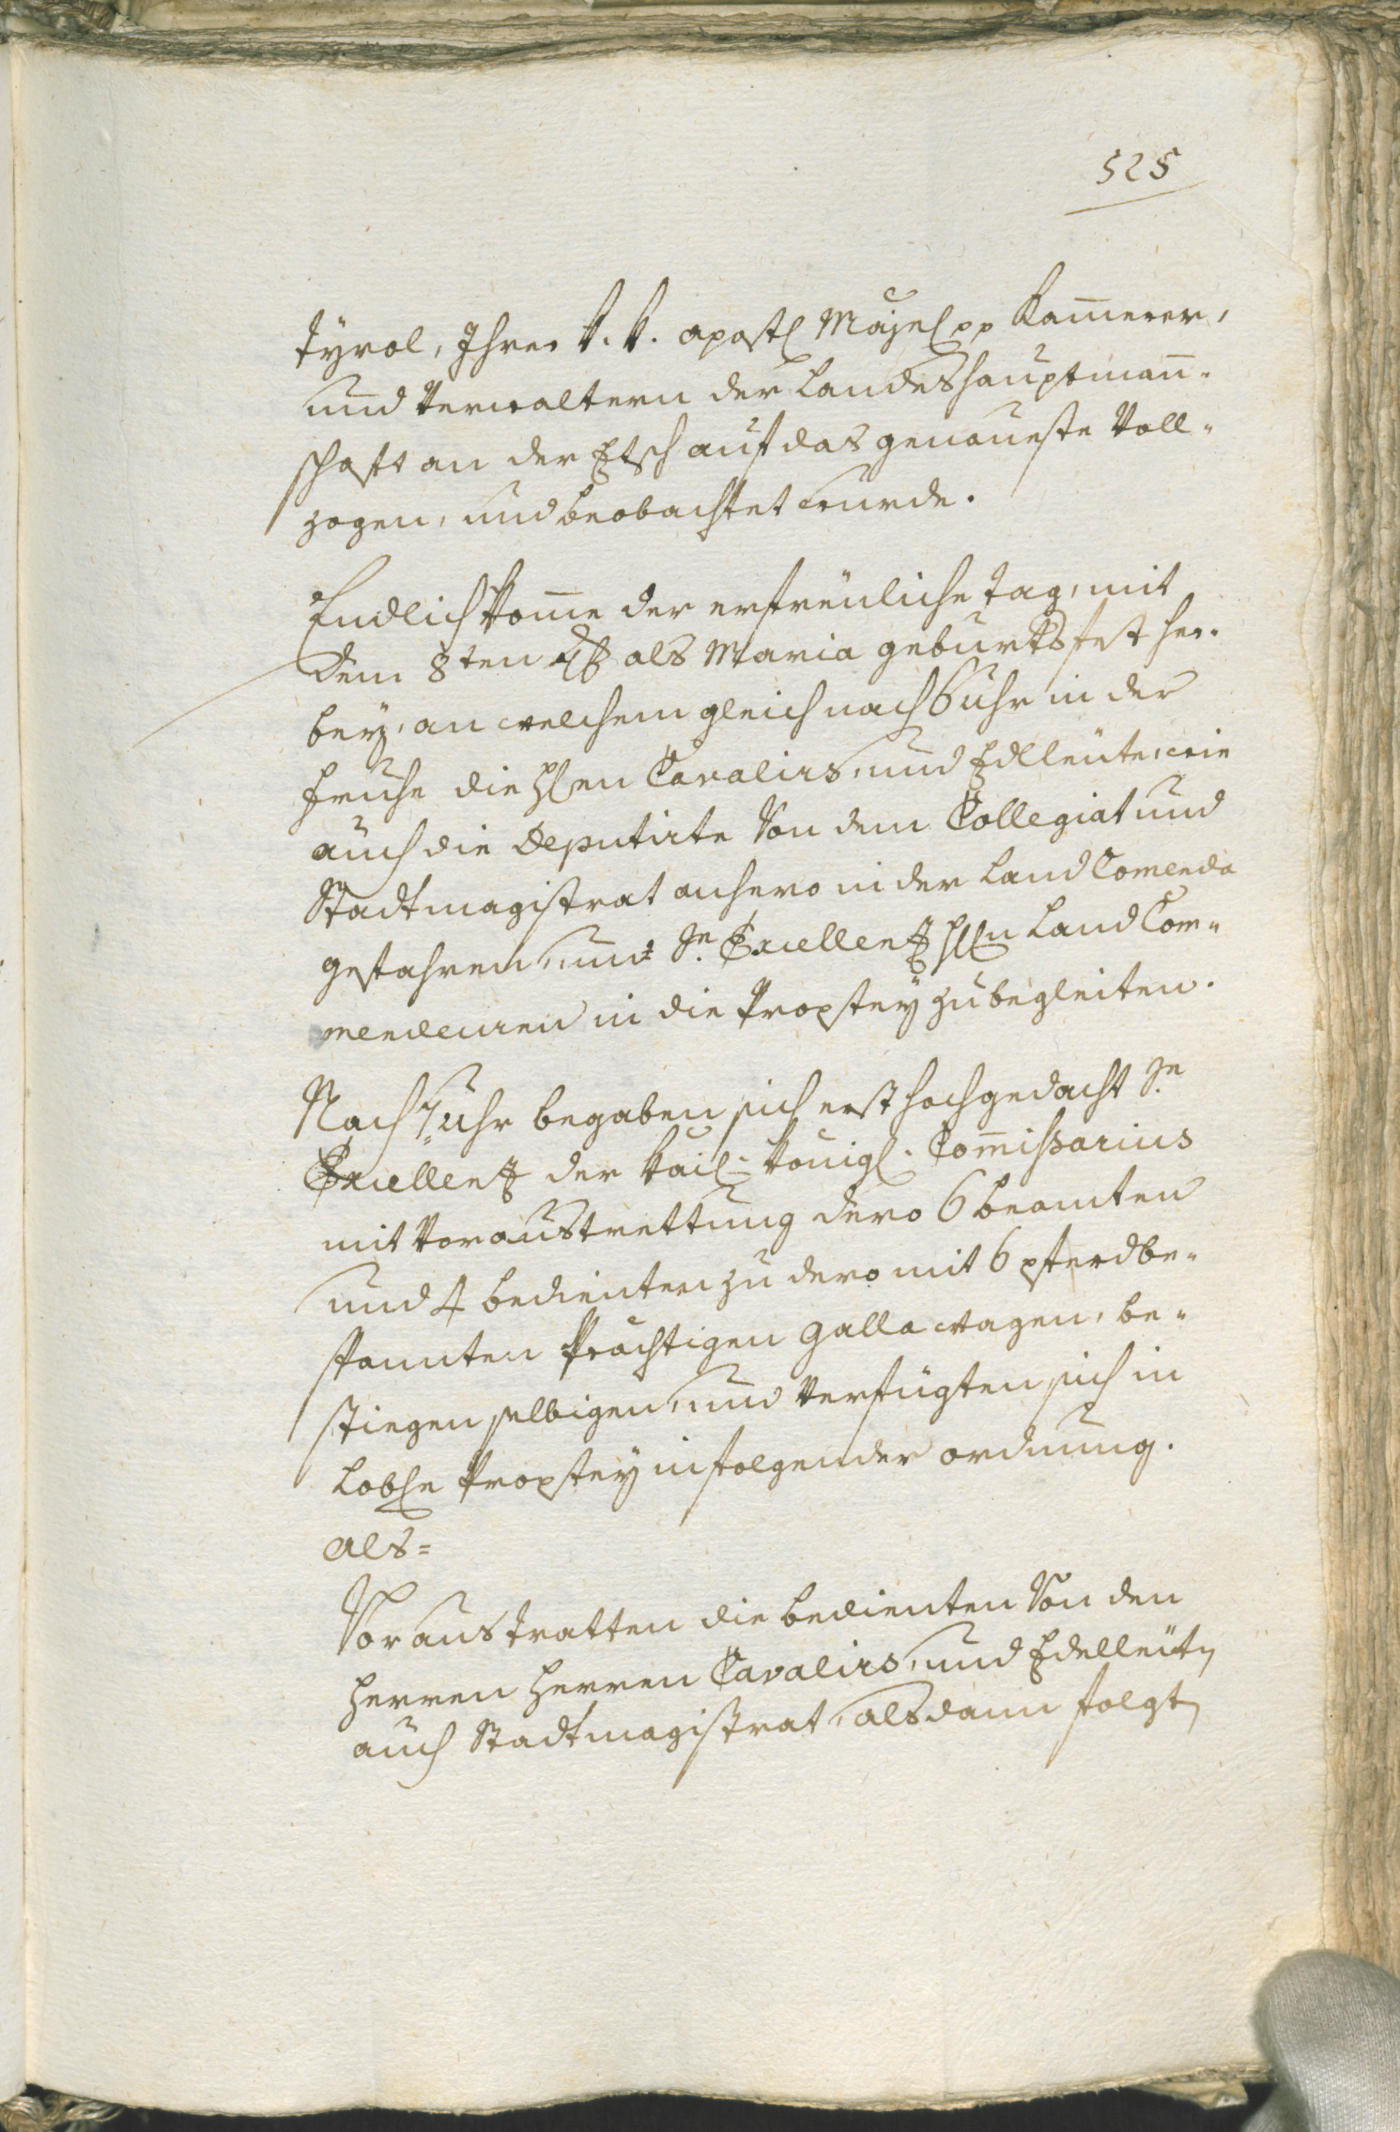 525
Tÿrol, Ihrer k. k. apostl Maÿes pp Kam̄erer,
und Verwaltern der Landeshauptman̄-
schaft an der Etsch auf das genaueste Voll-
zogen, und beobachtet wurde.
Endlich kom̄e der erfreuliche Tag, mit
dem 8ten als Maria geburtsfest her-
beÿ, an welchem gleich nach 6 uhr in der
fruhe die Hhen Cavaliers, und Edlleute, wie
auch die Deputirte Von dem Collegiat und
Stadtmagistrat anhero in der Land Comenda
gefahren, um Se Excellenz Hhn Land Com-
mendeuren in die Propsteÿ zu begleiten.
Nach 7 uhr begaben sich erst hochgedacht Se
Excellenz der Kaisl: Königl. Com̄issarius
mit Voraustrettung dero 6 beamten
und 4 bedienten zu dero mit 6 pferd be-
spannten Prächtigen Galla wagen, be-
stiegen selbigen, und Verfügten sich in
Lobhe Propsteÿ in folgender ordnung.
als=
Voraus tratten die bedienten Von den
Herren Herren Cavaliers, und Edelleuten
auch Stadtmagistrat, alsdann folgten